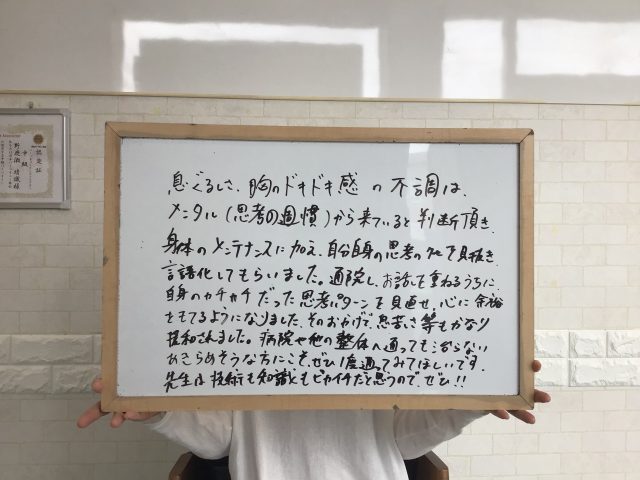 認定証
中級
息ぐるしさ、胸のドキドキ感の不調は、
メンタル(思考の週慣)から来ていると判断頂き、
身体のメンテナンスに加え、自分自身の思考のクセを見抜き、
言語化してもらいました。通院し、お話しを重ねるうちに、
自身のカチカチだった思考パターンを見直せ、心に余裕
をもてるようになりました。そのおかげで、息苦しさ等もかなり
緩和されました。病院や他の整体へ通っても治らない
あきらめそうな方にこそ、ぜひ1度通ってみてほしいです。
先生は技術も知識もピカイチだと思うので、ぜひ!!